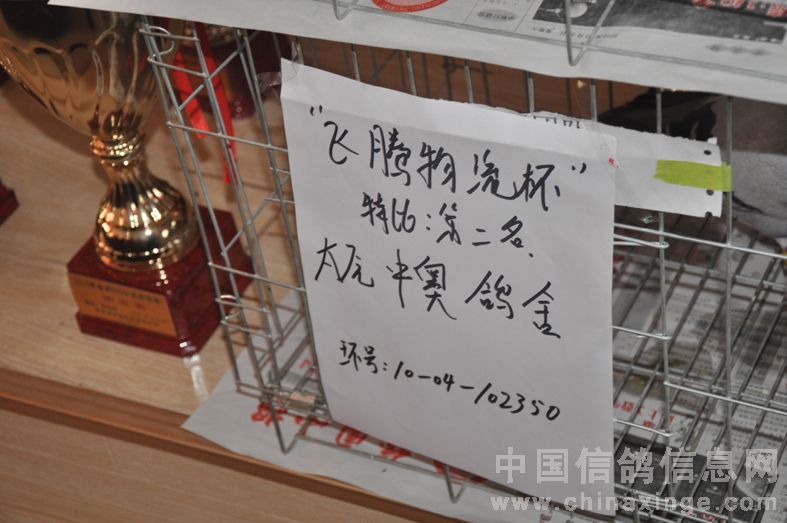 "飞腾物流杯"
特比:第二名.
太元中奥鸽舍
环号:10-04-102350
中国信鸽信息网
www.chinaxinge.com